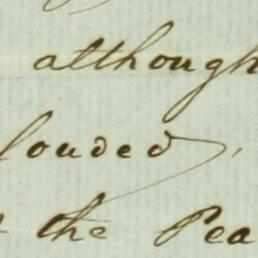 although
louded,
the Pea